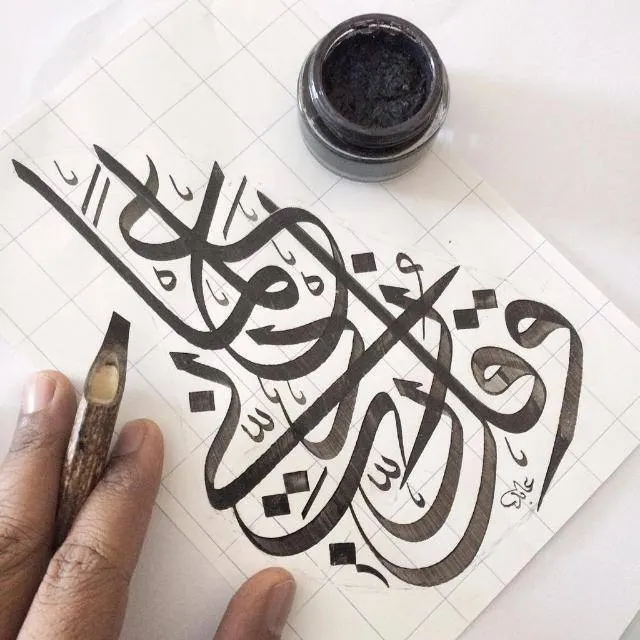 وقل ربّ زدني علماً